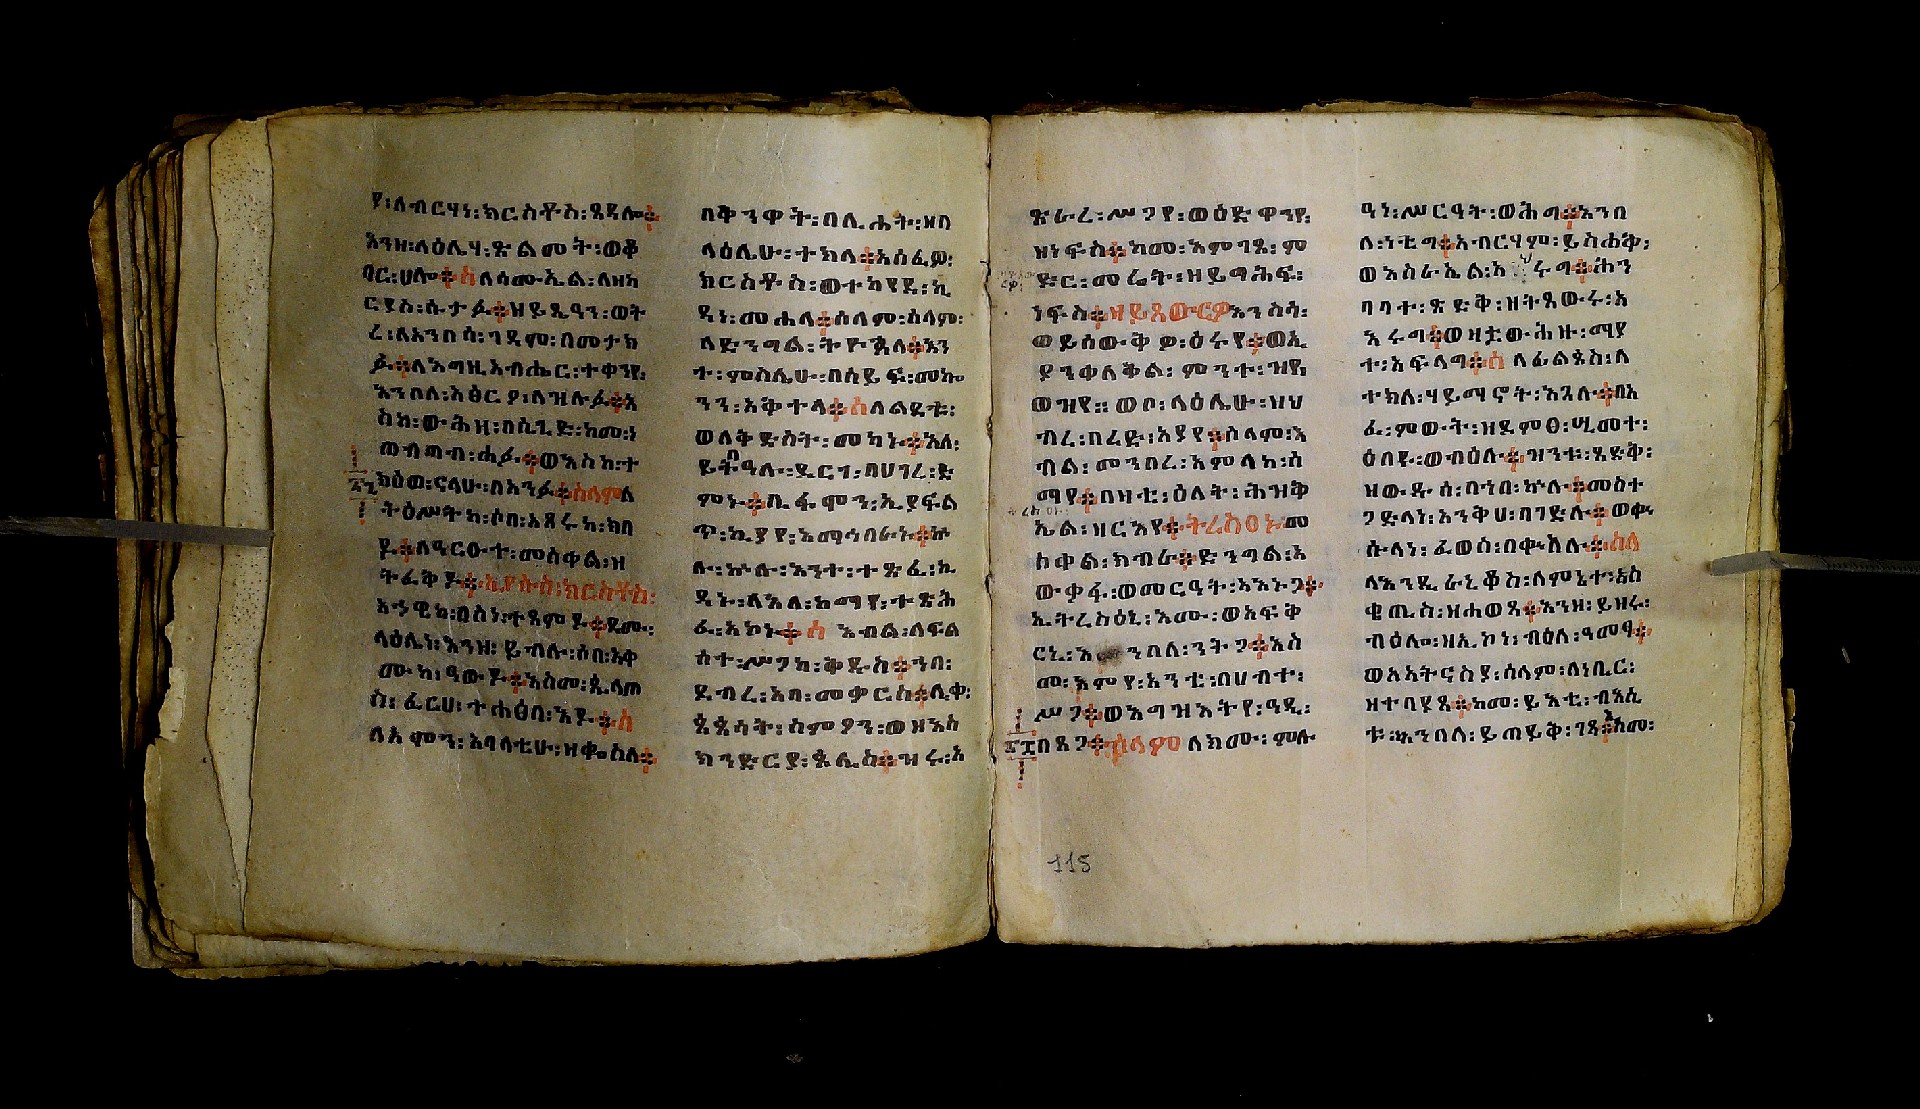 የ፡ለብርሃነ፡ክርስቶስ፡ጸዳሉ።
እንዘ፡ላዕሌሃ፡ጽልመት፡ወቆ
ባር፡ሀሎ።ስለሳሙኤል፡ለዘአ
ርየስ፡ሱታፉ።ዘይጼዓን፡ወት
ረ፡ለአንበሳ፡ገዳም፡በመታክ
ፉ።ለእግዚአብሔር፡ተቀንየ፡
እንበለ፡አፅርዖ፡ለዝሉፉ።እ
ስከ፡ውሕዘ፡በሲጊድ፡ከመ፡ነ
ጠብጣብ፡ሐፉ።ወእስከ፡ተ
ክዕወ፡ናላሁ፡በአንፉ።ሰላምለ
ትዕሥትከ፡ሶበ፡አጸሩከ፡ክበ
ደ።ለዓርዑተ፡መስቀል፡ዘ
ትፈቅዶ።ኢየሱስ፡ክርስቶስ፡
እኂዊከ፡በስነ፡ተጸምዶ።ደሙ፡
ላዕሌነ፡እንዝ፡ይብሉ፡ሰበ፡አቀ
ሙከ፡ዓውዶ።እስመ፡ጲላጦ
ስ፡ፈርሀ፡ተሐፅበ፡እዶ።ስ
ለአሞን፡አባለቲሁ፡ዘቈስለ።
በቅንዋት፡በሊሐት፡ዘበ
ላዕሌሁ፡ተክለ።አሰፈዎ፡
ክርስቶስ፡ወተካየደ፡ኪ
ዳነ፡መሐላ።ሰላም፡ሰላም፡
ለድንግል፡ትዮጵላ።እን
ተ፡ምስሌሁ፡በሰይፍ፡መኰ
ንን፡አቅተላ።ስለልደቱ፡
ወለቅድስት፡መካኑ።እለ፡
ይትበዓሉ፡ደርገ፡በሀገረ፡ድ
ምኑ።ቢፋሞን፡ኢያፍል
ጥ፡ኪያየ፡እማኅበራኑ።ኵ
ሉ፡ኵሉ፡እንተ፡ተጽፈ፡ኪ
ዳኑ፡ለእለ፡ከማየ፡ተጽሕ
ፈ፡አኮኑ።ስ እብል፡ለፍል
ሰተ፡ሥጋከ፡ቅዱስ።ንበ፡
ደብረ፡አባ፡መቃርስ።ሊቀ፡
ጳጳሳት፡ስምዖን፡ወዘእስ
ክንድርያ፡ጴሊስ።ዝሩ፡አ
ጽራረ፡ሥጋየ፡ወዕድዋንየ፡
ዘነፍስ።ከመ፡እምገጸ፡ም
ድር፡መሬት፡ዘይግሕፍ፡
ነፍስ።ዘይጸውርዎእንስሳ፡
ወይሰውቅዎ፡ዕሩየ።ወኢ
ያንቀለቅል፡ምንተ፡ዝየ
ወዝየ።ወቦ፡ላዕሌሁ፡ዘህ
ብረ፡በረድ፡አያየ።ስላም፡እ
ብል፡መንበረ፡አምላከ፡ሰ
ማየ።በዛቲ፡ዕለት፡ሕዝቅ
ኤል፡ዘርእየ።ትረስዐኑ፡መ
ስቀል፡ክብራ።ድንግል፡እ
ውቃፋ፡ወመርዓት፡እእኑጋ።
ኢትረስዕኒ፡እሙ፡ወአፍቅ
ርኒ፡እንበለ፡ንትጋ።እስ
መ፡እምየ፡አንቲ፡በሀብተ፡
ሥጋ።ወእግዝእትየ፡ዓዲ፡
በጸጋ።ሰላም ለክሙ፡ምሉ
ዓነ፡ሥርዓት፡ወሕግ።እንበ
ለ፡ነቲግ።አብርሃም፡ይስሐቅ፡
ወእስራኤል፡አዕሩግ።ሐን
ባባተ፡ጽድቅ፡ዘትጸውሩ፡እ
እሩግ።ወዘቷውሕዙ፡ማየ
ተ፡አፍላግ።ስ ለፊልጶስ፡ለ
ተክለ፡ሃይማኖት፡እጓለ።በእ
ፈ፡ምውት፡ዘደምፀ፡ሢመተ፡
ዕበዩ፡ወብዕሉ።ዝንቱ፡ጻድቅ፡
ዘውዱሰ፡በኀበ፡ኵሉ።መስተ
ጋድላነ፡እንቅሀ፡በገድሉ።ወቍ
ሱላነ፡ፈወስ፡በቍስሉ።ስለ
ለእንዲራኒቆስ፡ለምኔተ፡ኔስ
ቂጢስ፡ዝሐወጸ።እንዘ፡ይዝሩ፡
ብዕሎ፡ዘኢኮነ፡ብዕለ፡ዓመፃ።
ወለአትናስያ፡ሰላም፡ለነቢር፡
ዘተባየጸ።ከመ፡ይእቲ፡ብእሲ
ቱ፡እንበለ፡ይጠይቅ፡ገጻ።እመ፡
115